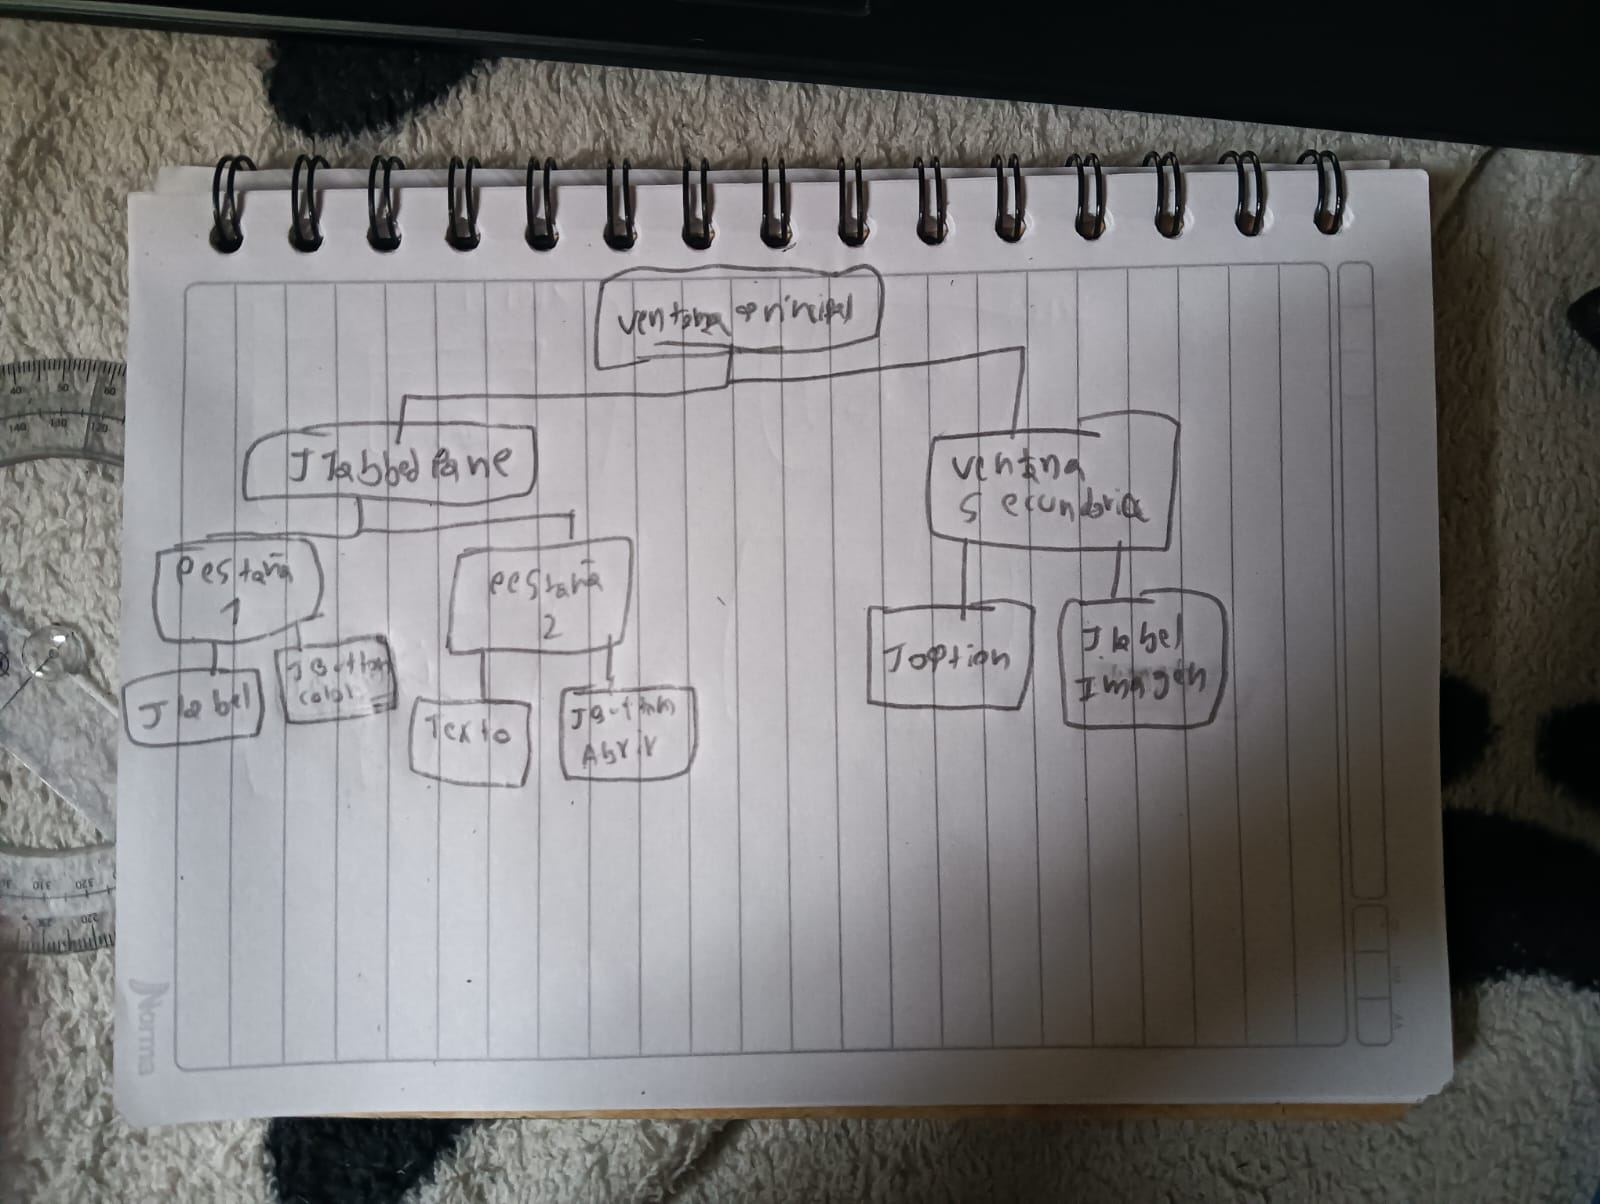 ventana principal
JTabbed Pane
ventana
secundaria
Pestaña
1
Pestaña
2
Jlabel
JButton
color
Texto
JButton
Abrir
Joption
Jlabel
Imagen
Norma
40 50 60
140 130 120
310 320
220